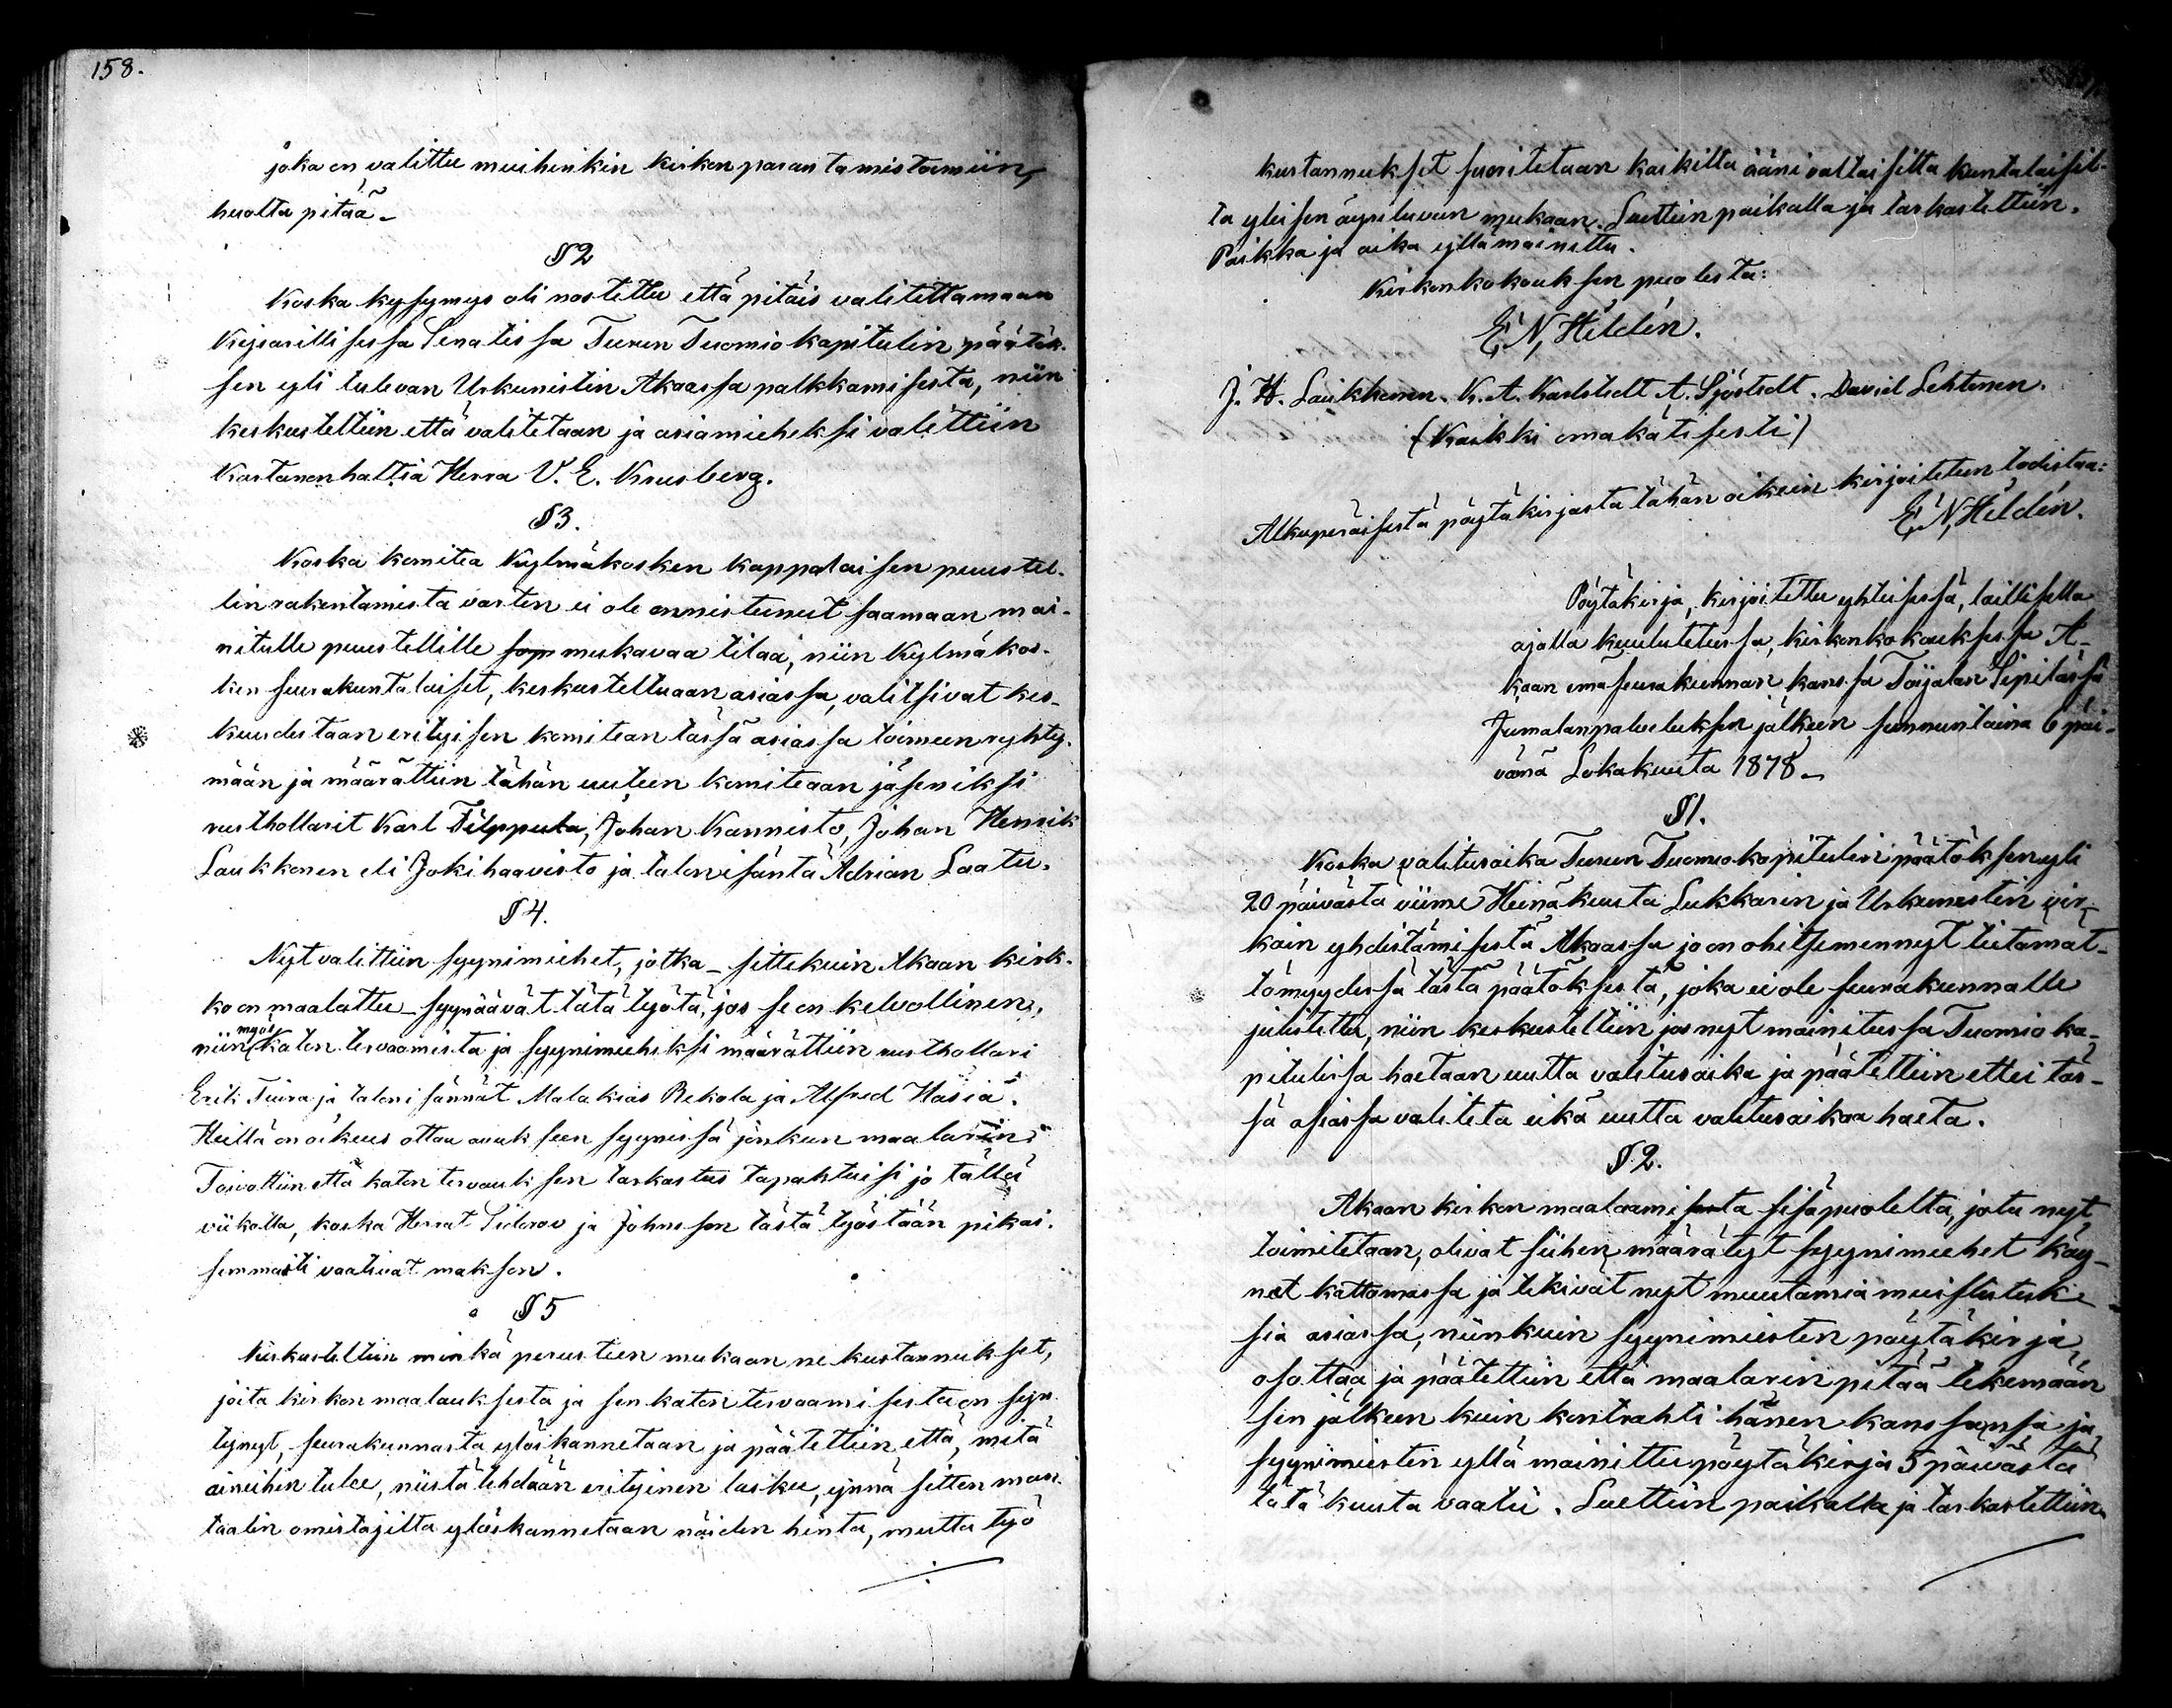 158.
joka on valittu muihinkin kirkon parantamistoimiin,
huolta pitää.
§ 2
Koska kysymys oli nostettu että pitäis valitettamaan
Keisarillisessa Senatissa Turun Tuomiokapitulin päätök-
sen yli tulevan Urkunistin Akaassa palkkamisesta, niin
keskusteltiin että valitetaan ja asiamieheksi valittiin
Kartanonhaltia Herra V. E. Krusberg.
§ 3.
Koska komitea Kylmäkosken kappalaisen puustel-
lin rakentamista varten ei ole onnistunut saamaan mai-
nitulle puustellille sop mukavaa tilaa, niin Kylmäkos-
ken seurakuntalaiset, keskusteltuaan asiassa, valitsivat kes-
kuudestaan erityisen komitean tässä asiassa toimeen ryhty-
mään ja määrättiin tähän uuteen komiteaan jäseniksi
rusthollarit Karl Tilppula, Johan Kannisto, Johan Henrik
Laukkonen eli Jokihaavisto ja talonisäntä Adrian Laatu.
§ 4.
Nyt valittiin syynimiehet, jotka – sittekuin Akaan kirk-
ko on maalattu – syynäävät tätä työtä, jos se on kelvollinen,
niin myös katon tervaamista ja syynimieheksi määrättiin rusthollari
Erik Tiura ja talonisännät Malakias Rekola ja Alfred Hasia.
Heillä on oikeus ottaa avukseen syynissä jonkun maalarin.
Toivottiin että katon tervauksen tarkastus tapahtuisi jo tällä
viikolla, koska Herrat Sidorov ja Johnsson tästä työstään pikai-
semmasti vaativat makson.
§ 5
Keskusteltiin minkä perusteen mukaan ne kustannukset,
joita kirkon maalauksesta ja sen katon tervaamisesta on syn-
tynyt, seurakunnasta ylöskannetaan ja päätettiin että, mitä
aineihin tulee, niistä tehdään erityinen lasku, ynnä sitten man-
taalin omistajilta ylöskannetaan näiden hinta, mutta työ
kustannukset suoritetaan kaikilta äänivaltaisilta kuntalaisil-
ta yleisen äyriluvun mukaan. Luettiin paikalla ja tarkastettiin.
Paikka ja aika yllämainittu.
Kirkonkokouksen puolesta:
E. N. Hildén.
J. H. Laukkonen. K. A. Karlstedt A. Sjöstedt. David Lehtonen.
(Kaikki omakätisesti)
Alkuperäisestä pöytäkirjasta tähän oikein kirjoitetun todistaa:
E. N. Hildén.
Pöytäkirja, kirjoitettu yhteisessä, laillisella
ajalla kuulutetussa, kirkonkokouksessa A-
kaan emäseurakunnan kanssa Toijalan Sipilässä
Jumalanpalveluksen jälkeen sunnuntaina 6 päi-
vänä Lokakuuta 1878.
§ 1.
Koska valitusaika Turun Tuomiokapitulin päätöksen yli
20 päivästä viime Heinäkuuta Lukkarin ja Urkunistin vir-
kain yhdistämisestä Akaassa jo on ohitsemennyt tietämät-
tömyydessä tästä päätöksestä, joka ei ole seurakunnalle
julistettu, niin keskusteltiin jos nyt mainitussa Tuomioka-
pitulissa haetaan uutta valitusaika ja päätettiin ettei täs-
sä asiassa valiteta eikä uutta valitusaikaa haeta.
§ 2.
Akaan kirkon maalaamisesta sisäpuolelta, jota nyt
toimitetaan, olivat siihen määrätyt syynimiehet käy-
net kattomassa ja tekivät nyt muutamia muistutuk-
sia asiassa, niinkuin syynimiesten pöytäkirja
osottaa ja päätettiin että maalarin pitää tekemään
sen jälkeen kuin kontrahti hänen kanssansa ja
syynimiesten yllä mainittu pöytäkirja 5 päivästä
tätä kuuta vaatii. Luettiin paikalla ja tarkastettiin